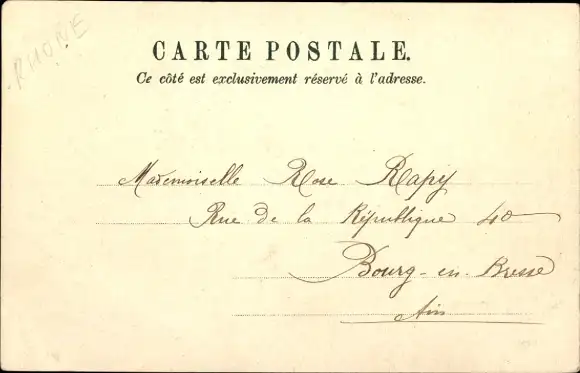 RHONE
CARTE POSTALE.
Ce côté est exclusivement réservé à l'adresse.
Mademoiselle Rose Rapy
Rue de la République 40
Bourg-en-Bresse
Ain